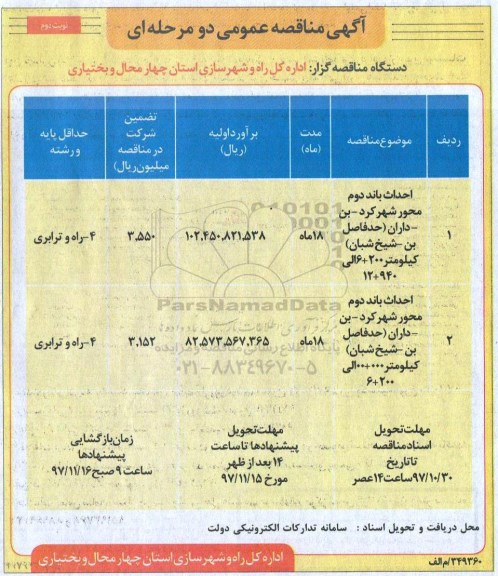 نوبت دوم
آگهی مناقصه عمومی دو مرحله ای
دستگاه مناقصه گزار: اداره کل راه و شهرسازی استان چهار محال و بختیاری
ردیف
موضوع مناقصه
مدت
(ماه)
برآورد اولیه
(ریال)
تضمین
شرکت
در مناقصه
(میلیون ریال)
حداقل پایه
و رشته
۱
احداث باند دوم
محور شهرکرد - بن
- داران (حدفاصل
بن - شیخ شبان)
کیلومتر ۲۰۰+۶ الی
۹۴۰+۱۲
۱۸ماه
۱۰۲,۴۵۰,۸۲۱,۵۳۸
۳,۵۵۰
۴-راه و ترابری
۲
احداث باند دوم
محور شهرکرد - بن
- داران (حدفاصل
بن - شیخ شبان)
کیلومتر ۰۰۰+۰ الی
۲۰۰+۶
۱۸ماه
۸۲,۵۷۳,۵۶۷,۳۶۵
۳,۱۵۲
۴-راه و ترابری
ParsNamadData
پایگاه اطلاع رسانی مناقصه و مزایده
۰۲۱-۸۸۳۴۹۶۷۰-۵
مهلت تحویل
اسناد مناقصه
تا تاریخ
۹۷/۱۰/۳۰ ساعت ۱۴ عصر
مهلت تحویل
پیشنهادها تا ساعت
۱۴ بعد از ظهر
مورخ ۹۷/۱۱/۱۵
زمان بازگشایی
پیشنهادها
ساعت ۹ صبح ۹۷/۱۱/۱۶
محل دریافت و تحویل اسناد : سامانه تدارکات الکترونیکی دولت
اداره کل راه و شهرسازی استان چهار محال و بختیاری
۳۴۹۳۶۰/م الف